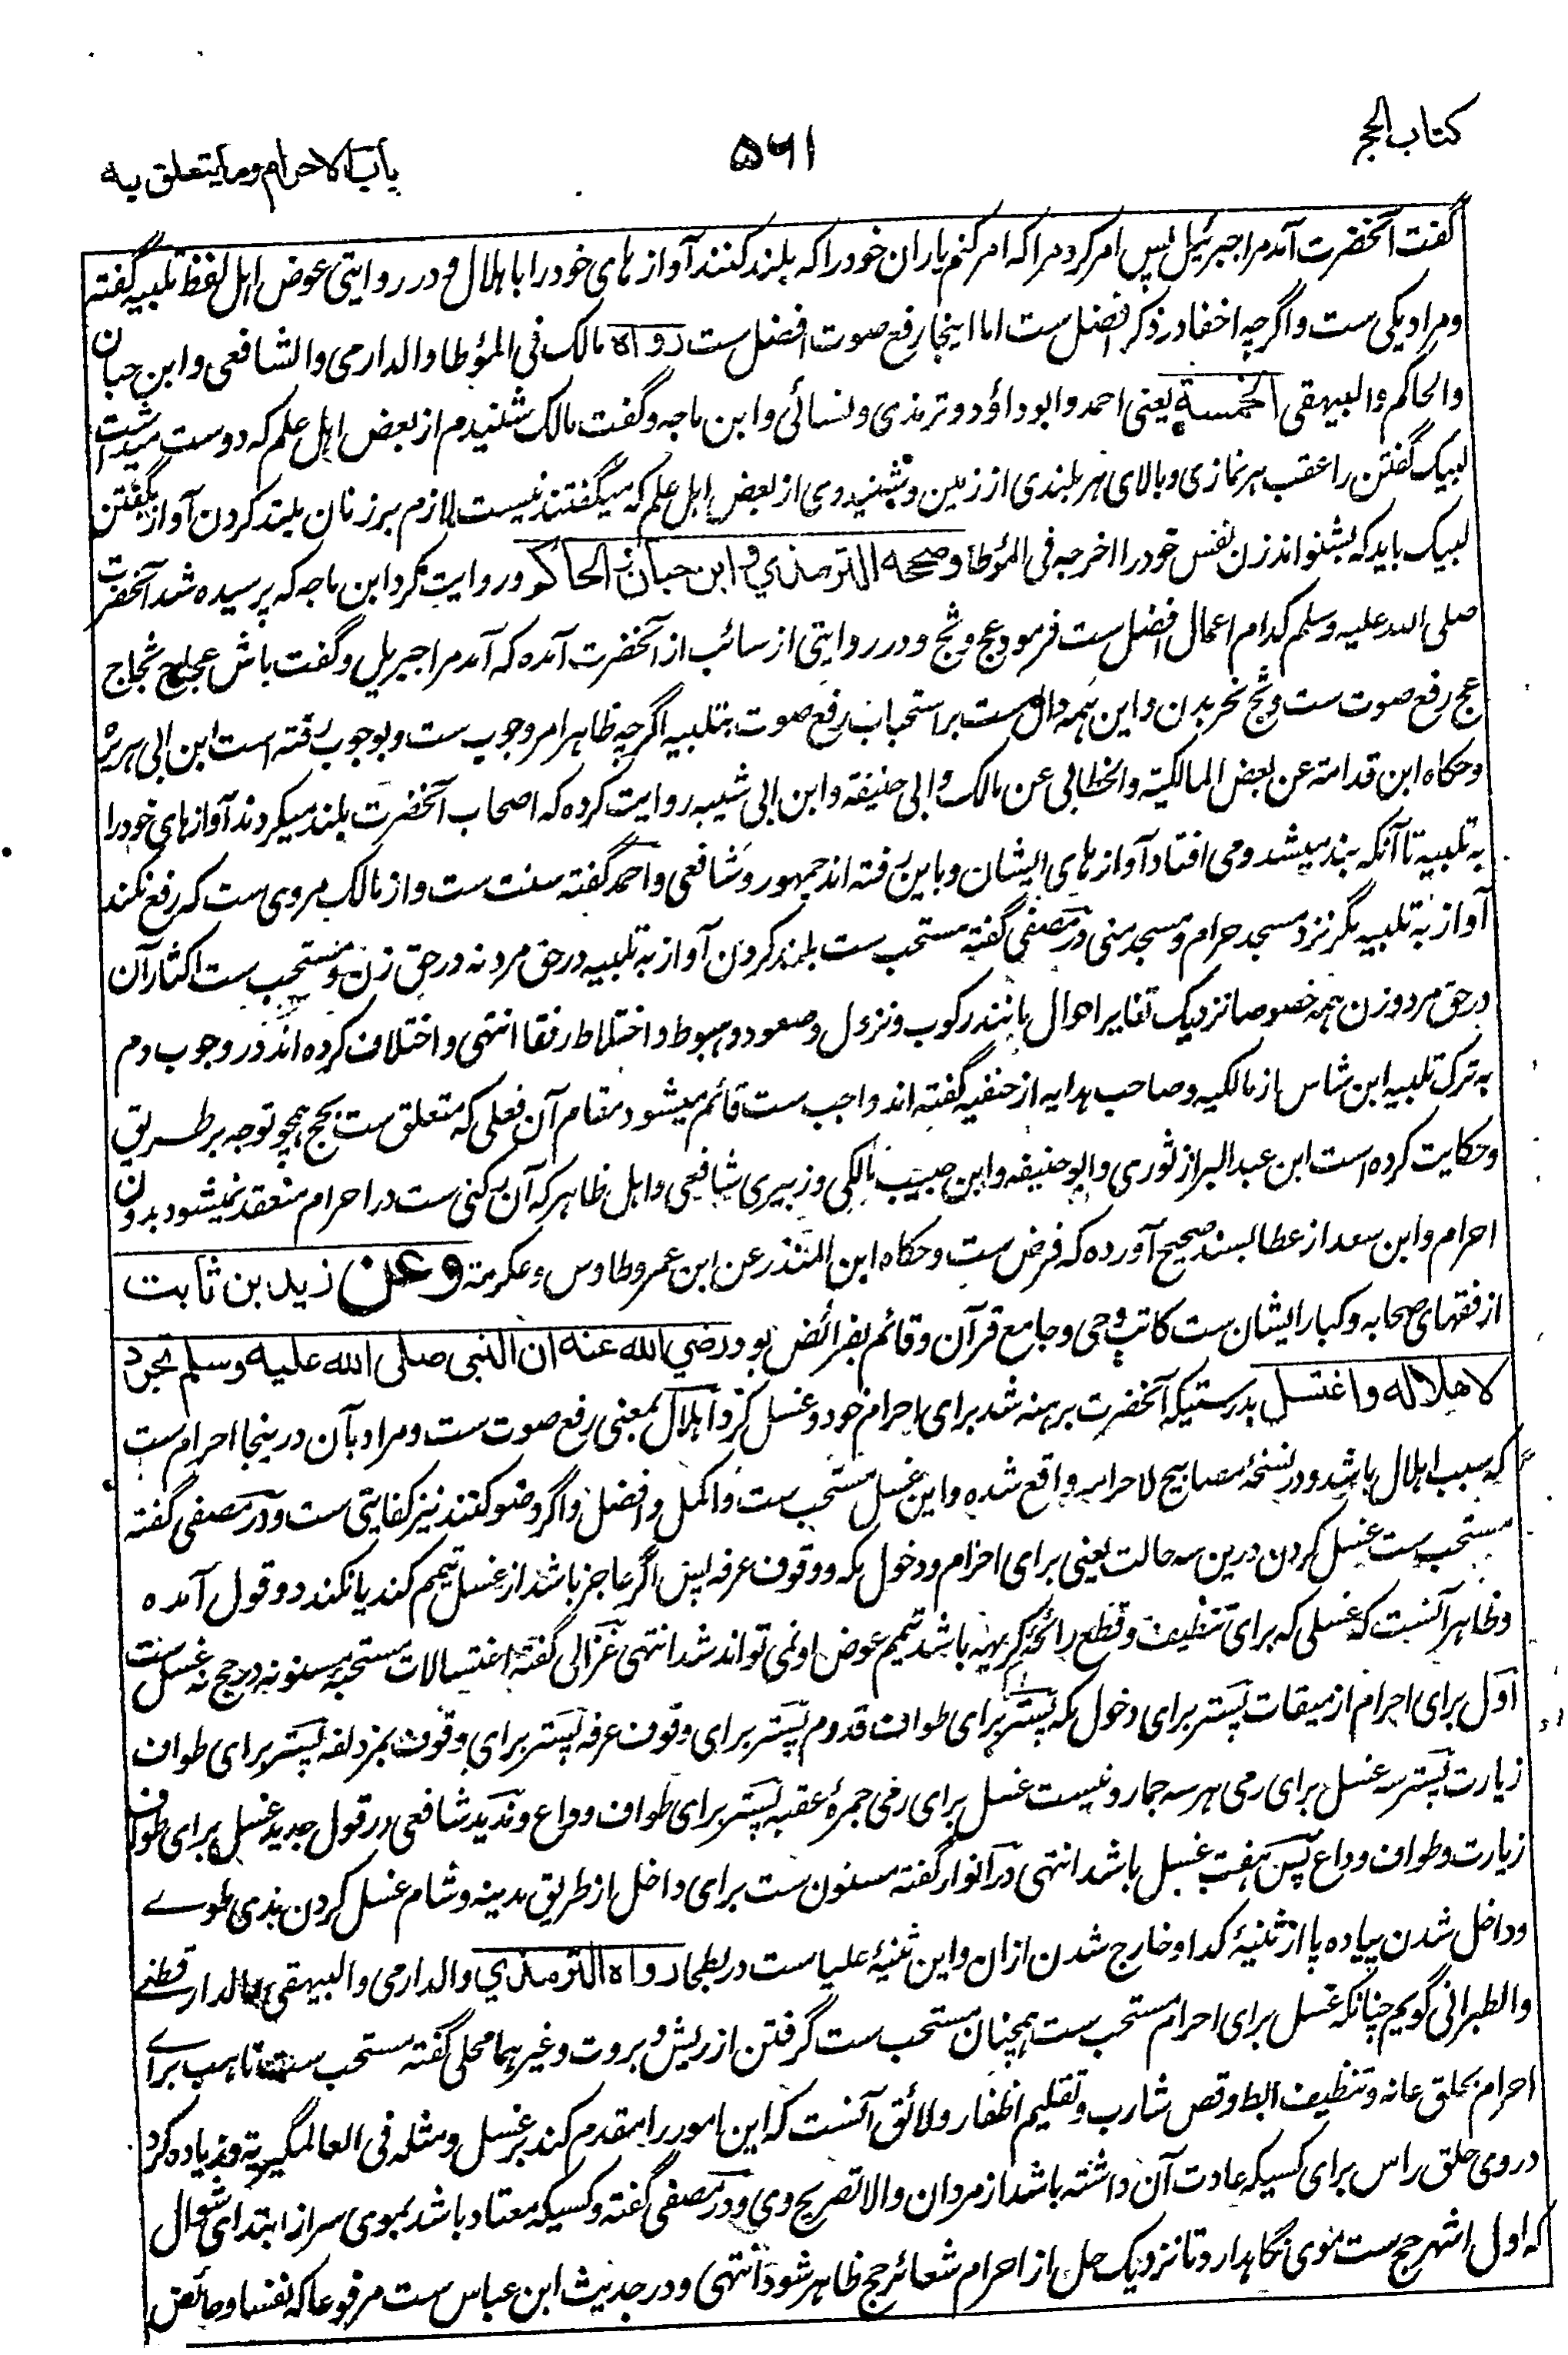 کتاب الحج
۵۶۱
باب الاحرام وما یتعلق به
گفت آنحضرت آمد مرا جبرئیل پس امر کرد مرا که امر کنم یاران خود را که بلند کنند آواز های خود را باهلال و در روایتی عوض اہل لفظ تلبیه گفته
ومراد یکی ست واگرچه اخفا در ذکر افضل ست اما اینجا رفع صوت افضل ست رواه مالک فی المؤطا والدارمی والشافعی وابن حبان
والحاکم والبیهقی الخمسة یعنی احمد وابو داؤد وترمذی ونسائی وابن ماجه وگفت مالک شنیدم از بعض اہل علم که دوست میداشت
لبیک گفتن را عقب ہر نمازی وبالای ہر بلندی از زمین وشنید وی از بعض اہل علم که میگفتند نیست لازم بر زنان بلند کردن آواز بگفتن
لبیک باید که بشنواند زن نفس خود را اخرجه فی المؤطا وصححه الترمذي و ابن حبان والحاکم وروایت کرد ابن ماجه که پرسیده شد آنحضرت
صلی الله علیه وسلم کدام اعمال افضل ست فرمود عج وثج ودر روایتی از سائب از آنحضرت آمده که آمد مرا جبریل وگفت باش عجاج ثجاج
عج رفع صوت ست وثج نحر بدن واین ہمه دال ست بر استحباب رفع صوت بتلبیه اگرچه ظاہر امر وجوب ست وبوجوب رفته است ابن ابی ہریرة
وحکاه ابن قدامة عن بعض المالکیة والخطابی عن مالک وابی حنیفة وابن ابی شیبه روایت کرده که اصحاب آنحضرت بلند میکردند آوازہای خود را
به تلبیه تا آنکه بند میشد ومی افتاد آواز ہای ایشان وباین رفته اند جمہور وشافعی واحمد گفته سنت ست واز مالک مروی ست که رفع نکند
آواز به تلبیه مگر نزد مسجد حرام ومسجد منی در مصفی گفته مستحب ست بلند کردن آواز به تلبیه در حق مرد نه در حق زن ومستحب ست اکثار آن
در حق مرد وزن ہمه خصوصا نزدیک تغایر احوال مانند رکوب ونزول وصعود وہبوط واختلاط رفقا انتهی واختلاف کرده اند در وجوب دم
به ترک تلبیه ابن شاس از مالکیه وصاحب ہدایه از حنفیه گفته اند واجب ست قائم میشود مقام آن فعلی که متعلق ست بحج ہمچو توجه بر طریق
وحکایت کرده است ابن عبد البر از ثوری وابو حنیفه وابن حبیب مالکی وزبیری شافعی واہل ظاہر که آن رکنی ست در احرام منعقد نمیشود بدون
احرام وابن سعد از عطا بسند صحیح آورده که فرض ست وحکاه ابن المنذر عن ابن عمر وطاوس وعکرمة وعن زید بن ثابت
از فقہای صحابه وکبار ایشان ست کاتب وحی وجامع قرآن وقائم بفرائض بود رضي الله عنه ان النبی صلی الله علیه وسلم تجرد
لاهلاله واغتسل بدرستیکه آنحضرت برہنه شد برای احرام خود وغسل کرد واہلال بمعنی رفع صوت ست ومراد بآن درینجا احرام ست
که سبب اہلال باشد ودر نسخهٔ مصابیح لاحرامه واقع شده واین غسل مستحب ست واکمل وافضل واگر وضو کنند نیز کفایتی ست ودر مصفی گفته
مستحب ست غسل کردن درین سه حالت یعنی برای احرام ودخول مکه ووقوف عرفه لپس اگر عاجز باشد از غسل تیمم کند یا نکند دو قول آمده
وظاہر آنست که غسلی که برای تنظیف وقطع رائحهٔ کریهه باشد تیمم عوض او نمی تواند شد انتهی غزالی گفته اغتسالات مستحبه مسنونه در حج نه غسل ست
اول برای احرام از میقات پستر برای دخول مکه پستر برای طواف قدوم پستر برای وقوف عرفه پستر برای وقوف بمزدلفه پستر برای طواف
زیارت پستر سه غسل برای رمی ہر سه جمار ونیست غسل برای رمی جمرهٔ عقبه پستر برای طواف وداع وندید شافعی در قول جدید غسل برای طواف
زیارت وطواف وداع پس ہفت غسل باشد انتهی در انوار گفته مسنون ست برای داخل از طریق مدینه وشام غسل کردن بذی طوے
وداخل شدن پیاده پا از ثنیهٔ کدا وخارج شدن ازان واین ثنیهٔ علیا ست در بطحا رواه الترمذي والدارمی والبیهقی والدارقطنے
والطبرانی گویم چنانکه غسل برای احرام مستحب ست ہمچنان مستحب ست گرفتن از ریش وبروت وغیرہما محلی گفته مستحب ست تاہب براے
احرام بحلق عانه وتنظیف ابط وقص شارب وتقلیم اظفار ولائق آنست که این امور را مقدم کند بر غسل ومثله فی العالمگیریة وزیاده کرد
در وی حلق راس برای کسیکه عادت آن داشته باشد از مردان والا تصریح وی ودر مصفی گفته وکسیکه معتاد باشد بموی سر از ابتدای شوال
که اول اشہر حج ست موی نگاہدارد تا نزدیک حل از احرام شعائر حج ظاہر شود انتهی ودر حدیث ابن عباس ست مرفوعا که نفسا وحائض